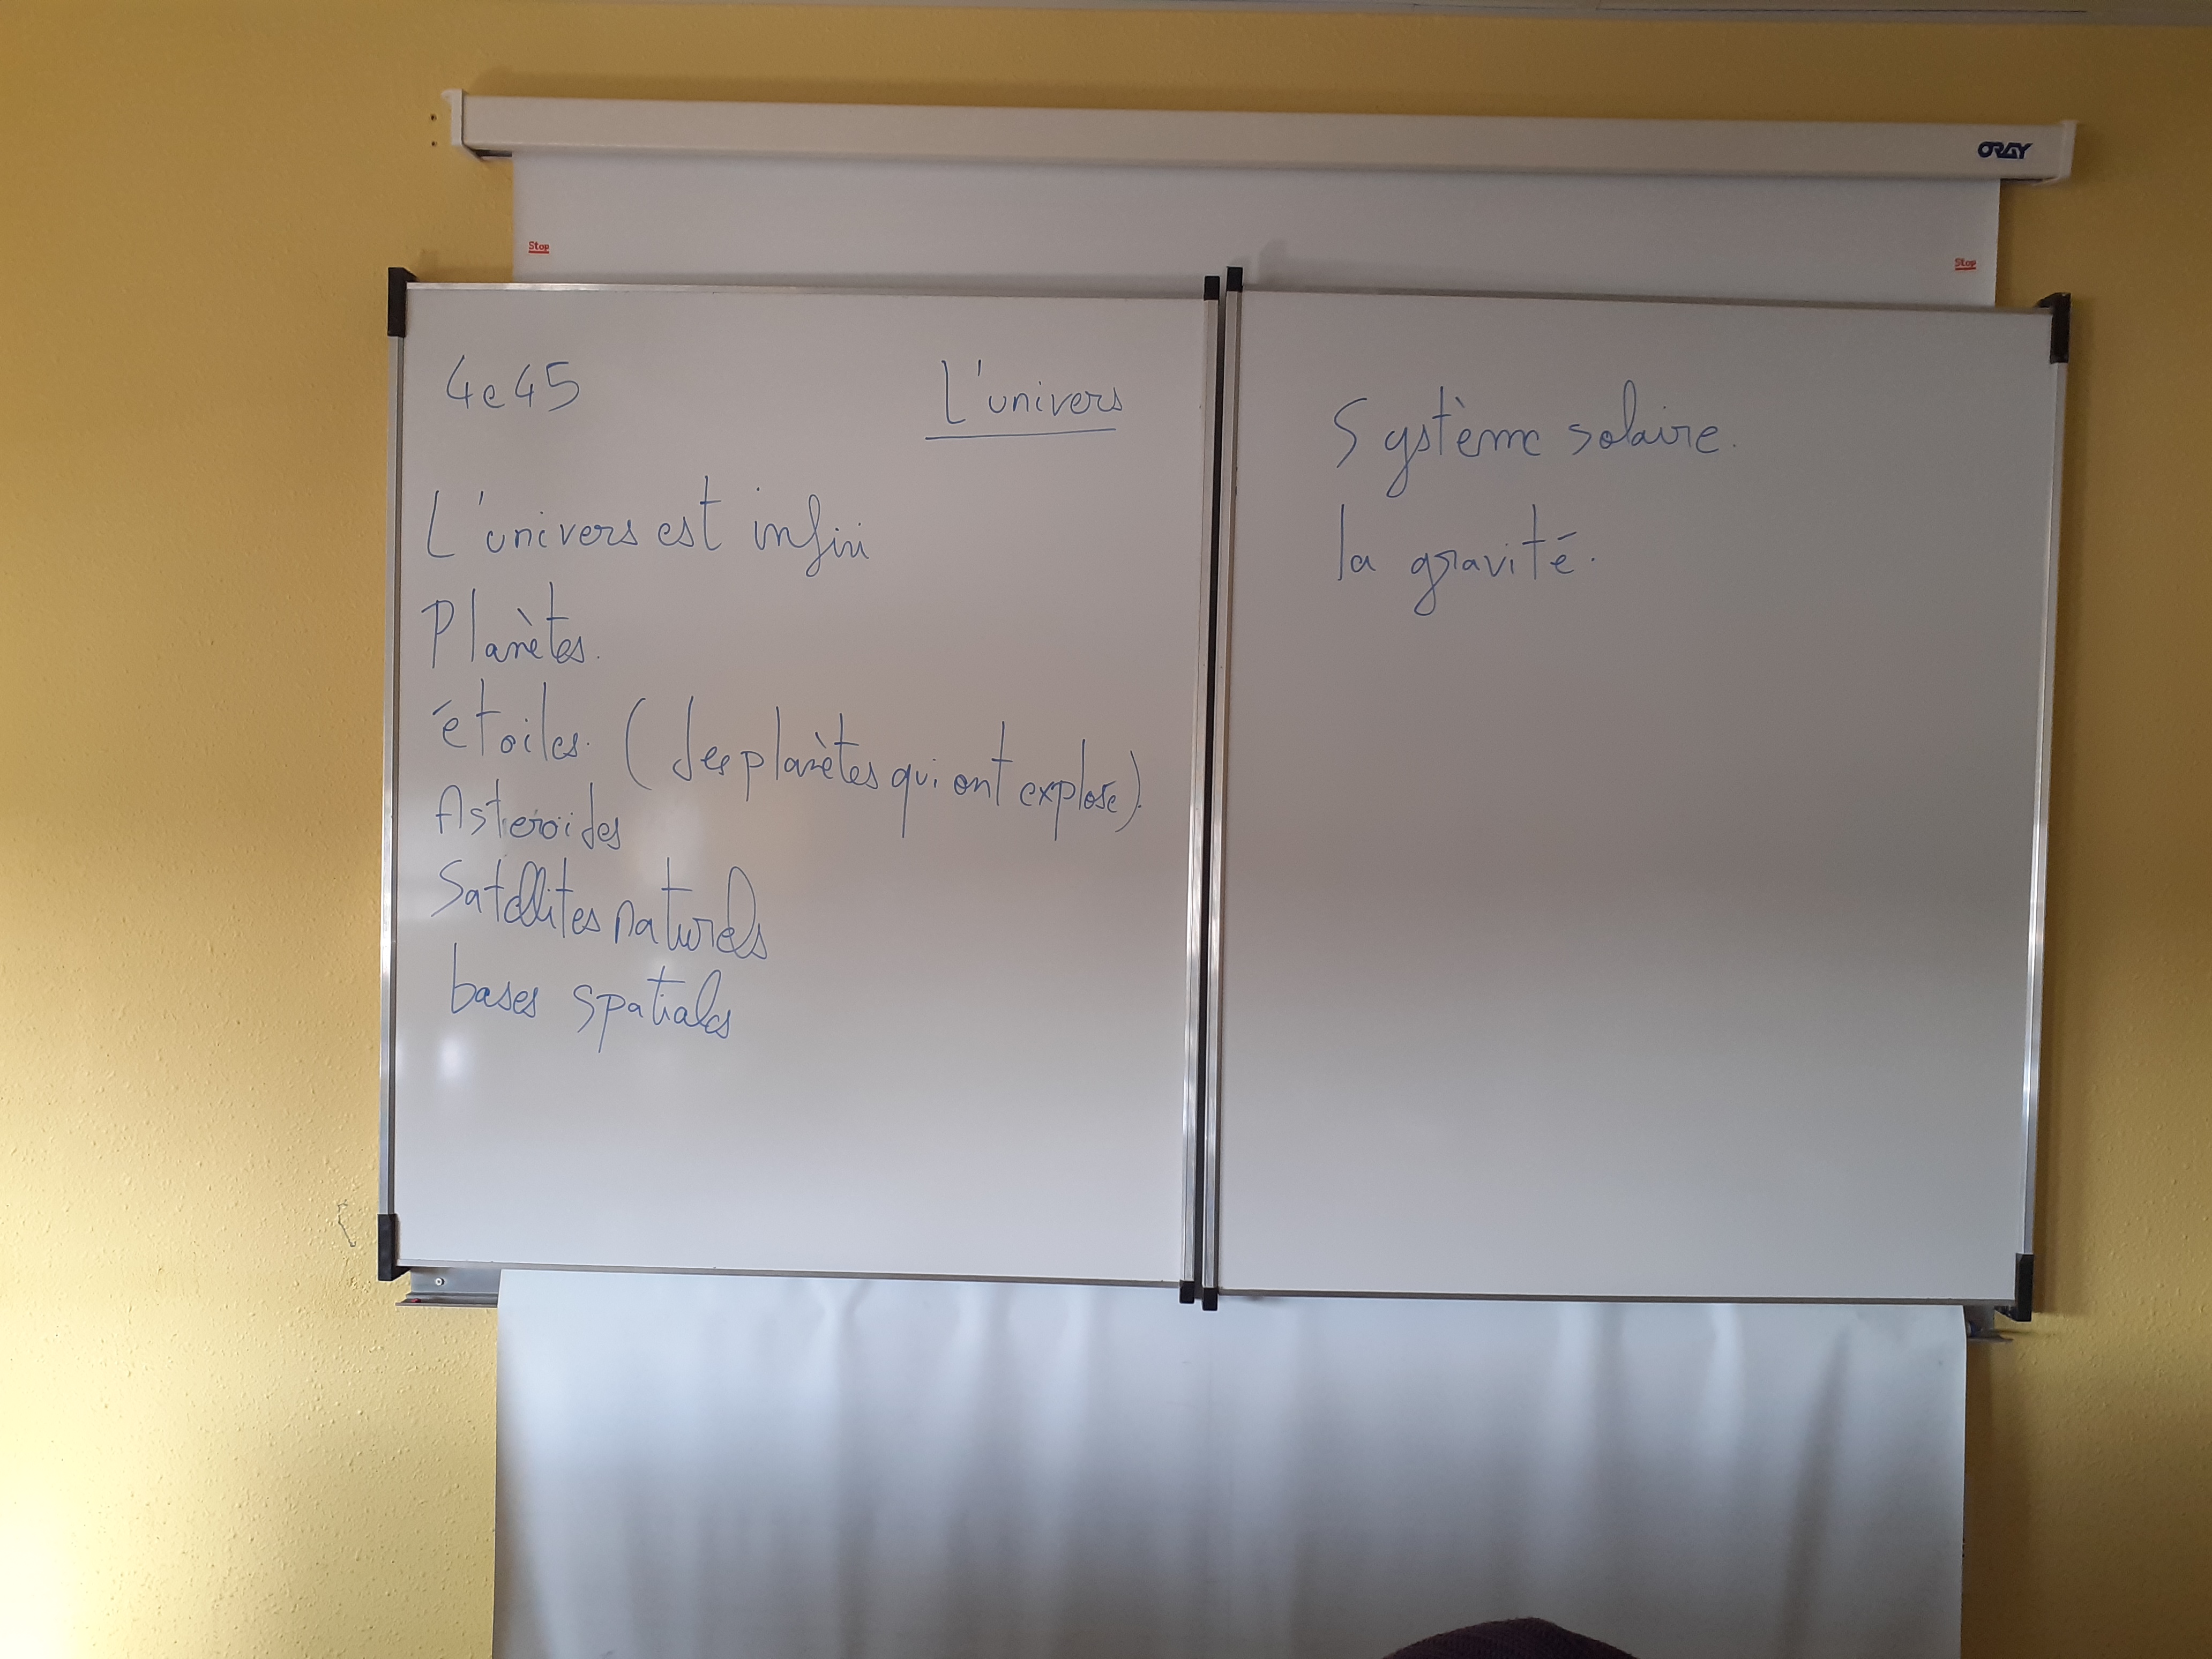 ORAY
Stop
Stop
4e45
L'univers
L'univers est infini
Planètes.
étoiles. (des planètes qui ont explosé).
Asteroïdes
Satellites naturels
bases spatiales
Système solaire.
la gravité.